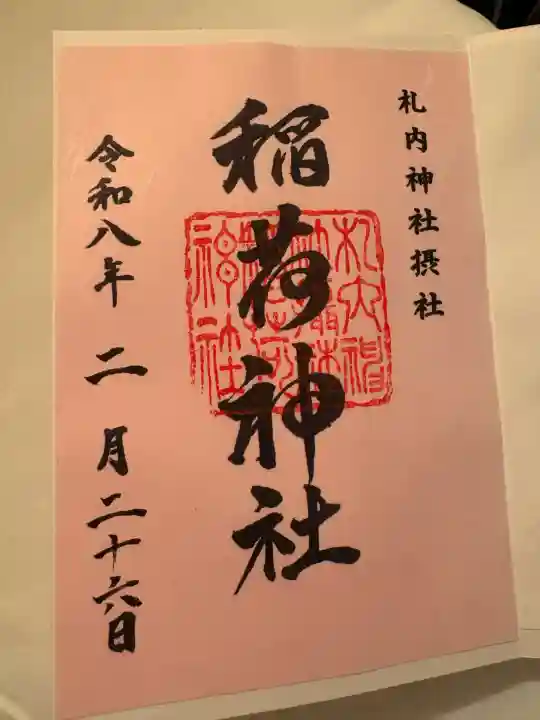 札内神社摂社
稲荷神社
令和八年 二 月二十六日